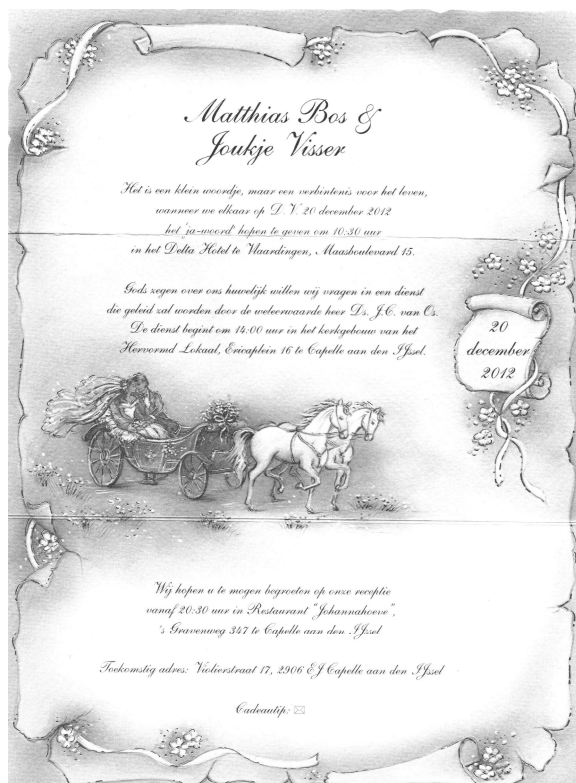 Matthias Bos &
Joukje Visser
Het is een klein woordje, maar een verbintenis voor het leven,
wanneer we elkaar op D.V. 20 december 2012
het 'ja-woord' hopen te geven om 10:30 uur
in het Delta Hotel te Vlaardingen, Maasboulevard 15.
Gods zegen over ons huwelijk willen wij vragen in een dienst
die geleid zal worden door de weleerwaarde heer Ds. J.C. van Os.
De dienst begint om 14:00 uur in het kerkgebouw van het
Hervormd Lokaal, Ericaplein 16 te Capelle aan den IJssel.
20
december
2012
Wij hopen u te mogen begroeten op onze receptie
vanaf 20:30 uur in Restaurant "Johannahoeve",
's Gravenweg 347 te Capelle aan den IJssel
Toekomstig adres: Violierstraat 17, 2906 EJ Capelle aan den IJssel
Cadeautip: ✉